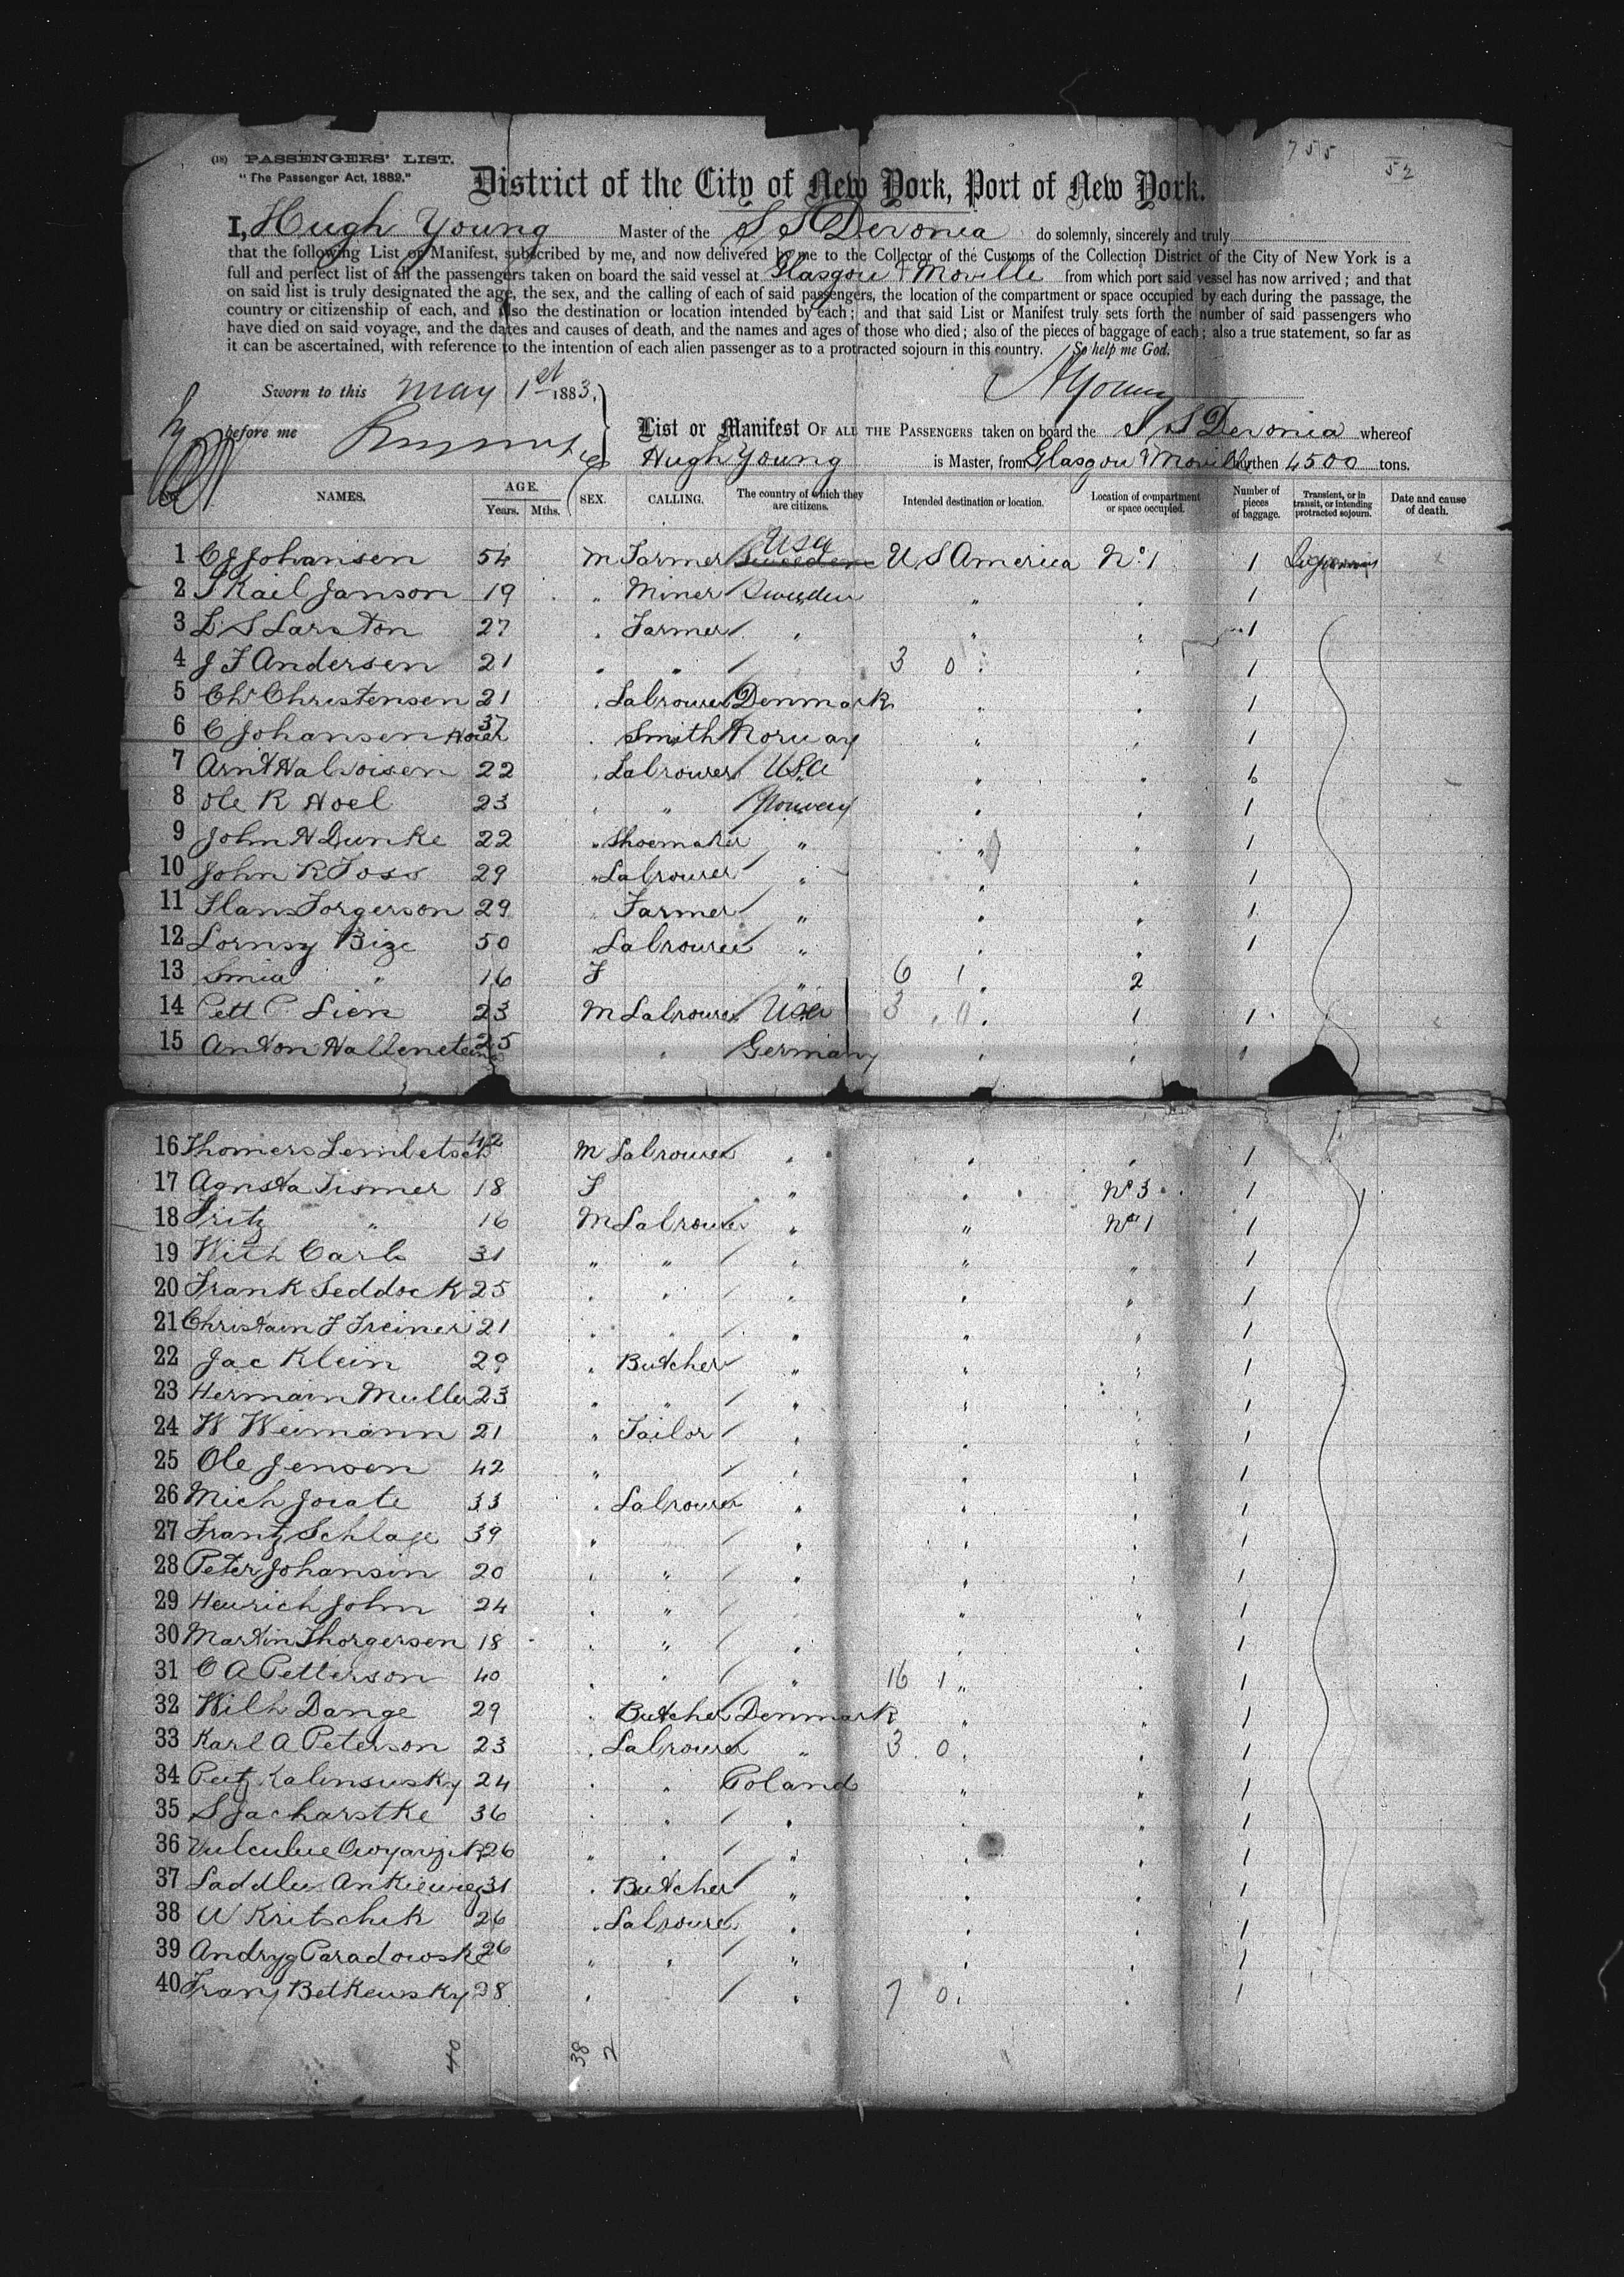 755
52
(18) PASSENGERS' LIST.
"The Passenger Act, 1882."
District of the City of New York, Port of New York.
I, Hugh Young Master of the S S Devonia do solemnly, sincerely and truly
that the following List or Manifest, subscribed by me, and now delivered by me to the Collector of the Customs of the Collection District of the City of New York is a
full and perfect list of all the passengers taken on board the said vessel at Glasgow & Moville from which port said vessel has now arrived; and that
on said list is truly designated the age, the sex, and the calling of each of said passengers, the location of the compartment or space occupied by each during the passage, the
country or citizenship of each, and also the destination or location intended by each; and that said List or Manifest truly sets forth the number of said passengers who
have died on said voyage, and the dates and causes of death, and the names and ages of those who died; also of the pieces of baggage of each; also a true statement, so far as
it can be ascertained, with reference to the intention of each alien passenger as to a protracted sojourn in this country. So help me God.
Sworn to this May 1st 1883. H Young
before me
List or Manifest OF ALL THE PASSENGERS taken on board the S S Devonia whereof
Hugh Young is Master, from Glasgow & Moville burthen 4500 tons.
No. NAMES. AGE. Years. Mths. SEX. CALLING. The country of which they are citizens. Intended destination or location. Location of compartment or space occupied. Number of pieces of baggage. Transient, or in transit, or intending protracted sojourn. Date and cause of death.
1 C J Johansen 54 M Farmer Sweden USA U S America No 1 1
2 S Kail Janson 19 " Miner Sweden " " 1
3 L S Larston 27 " Farmer " " " 1
4 J F Andersen 21 " " 3 0 " " 1
5 Chr Christensen 21 " Labrourer Denmark " " 1
6 C Johansen Hoier 37 " Smith Norway " " 1
7 Arnt Halvoisen 22 " Labrourer USA " " 6
8 Ole R Hoel 23 " " Norway " " 1
9 John H Dunke 22 " Shoemaker " " " 1
10 John R Foss 29 " Labrourer " " " 1
11 Hans Torgerson 29 " Farmer " " " 1
12 Lornsy Bize 50 " Labrourer " " " 1
13 Smia " 16 F " 6 1 " 2
14 Pett P Lien 23 M Labrourer USA 3 0 " 1 1
15 Anton Hallenstein 25 " Germany " " 1
16 Thomers Lembetsch 42 M Labrourer " " " 1
17 Agusta Tismer 18 F " " No 3 1
18 Fritz " 16 M Labrourer " " No 1 1
19 With Carls 31 " " " " " 1
20 Frank Seddock 25 " " " " " 1
21 Christain F Treiner 21 " " " " " 1
22 Jac Klein 29 " Butcher " " " 1
23 Hermain Muller 23 " " " " " 1
24 W Weimann 21 " Tailor " " " 1
25 Ole Jenson 42 " " " " 1
26 Mich Jocate 33 " Labrourer " " " 1
27 Frantz Schlage 39 " " " " " 1
28 Peter Johansin 20 " " " " " 1
29 Heurich John 24 " " " " 1
30 Martin Thorgersen 18 " " " " " 1
31 C A Petterson 40 " " " 16 1 " " 1
32 Wilh Dange 29 " Butcher Denmark " " 1
33 Karl A Peterson 23 " Labrourer " 3 0 " " 1
34 Peetz Kalinsusky 24 " " Poland " " 1
35 S Jacharstke 36 " " " " " 1
36 26 " " " " " 1
37 Laddleu Ankiewiez 31 " Butcher " " " 1
38 W Kritschik 26 " Labrourer " " " 1
39 Andryg Paradowske 26 " " " " " 1
40 Franz Betkewsky 28 " " 7 0 " " 1
40 38 2